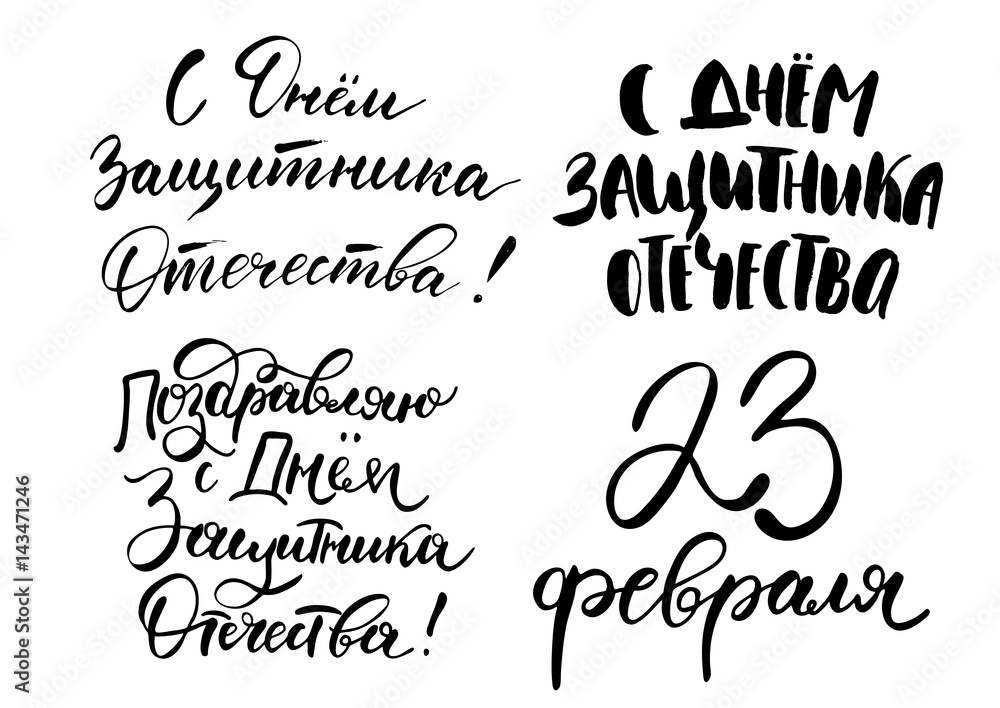 С Днём
Защитника
Отечества!
С ДНЁМ
ЗАЩИТНИКА
ОТЕЧЕСТВА
Поздравляю
с Днём
Защитника
Отечества!
23
февраля
Adobe Stock | #143471246